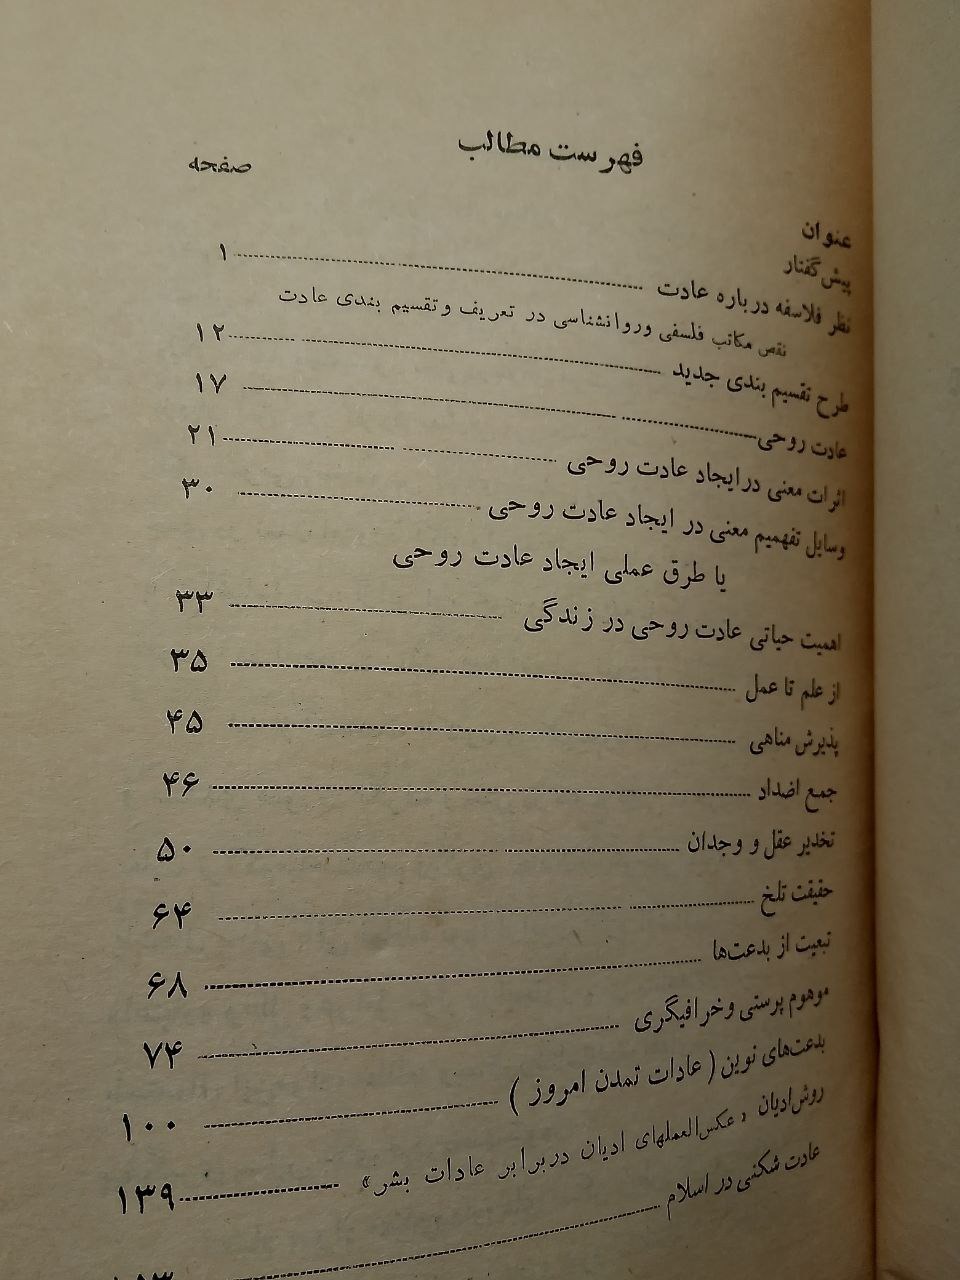 فهرست مطالب
عنوان صفحه
پیش گفتار
نظر فلاسفه درباره عادت ۱
نقص مکاتب فلسفی وروانشناسی در تعریف وتقسیم بندی عادت
طرح تقسیم بندی جدید ۱۲
عادت روحی ۱۷
اثرات معنی درایجاد عادت روحی ۲۱
وسایل تفهمیم معنی در ایجاد عادت روحی ۳۰
یا طرق عملی ایجاد عادت روحی
اهمیت حیاتی عادت روحی در زندگی ۳۳
از علم تا عمل ۳۵
پذیرش مناهی ۴۵
جمع اضداد ۴۶
تخدیر عقل و وجدان ۵۰
حقیقت تلخ ۶۴
تبعیت از بدعت‌ها ۶۸
موهوم پرستی وخرافیگری ۷۴
بدعت‌های نوین ( عادات تمدن امروز ) ۱۰۰
روش‌ادیان « عکس‌العملهای ادیان دربرابر عادات بشر» ۱۳۹
عادت شکنی در اسلام